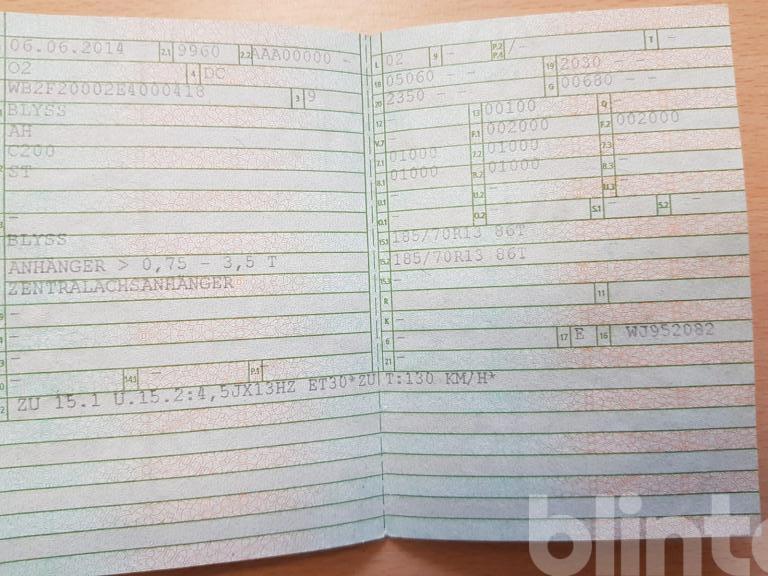 06.06.2014 2.1 9960 2.2 AAA00000 -
02 4 DC
WB2F20002E4000418 3 9
BLYSS
AH
C200
ST
-
BLYSS
ANHÄNGER > 0,75 - 3,5 T
ZENTRALACHSANHÄNGER
-
-
-
- 14.1 - P.1 -
ZU 15.1 U.15.2:4,5JX13HZ ET30*ZU T:130 KM/H*
L 02 9 - P.2 P.4 /- T -
18 05060 - - 19 2030 - -
20 2350 - - G 00680 - -
12 - 13 00100 Q -
V.7 - F.1 002000 F.2 002000
7.1 01000 7.2 01000 7.3 -
8.1 01000 8.2 01000 8.3 -
U.1 - U.2 - U.3 -
O.1 - O.2 - S.1 - S.2 -
15.1 185/70R13 86T
15.2 185/70R13 86T
15.3 -
R - 11 -
K -
6 - 17 E 16 WJ952082
21 -
blinto